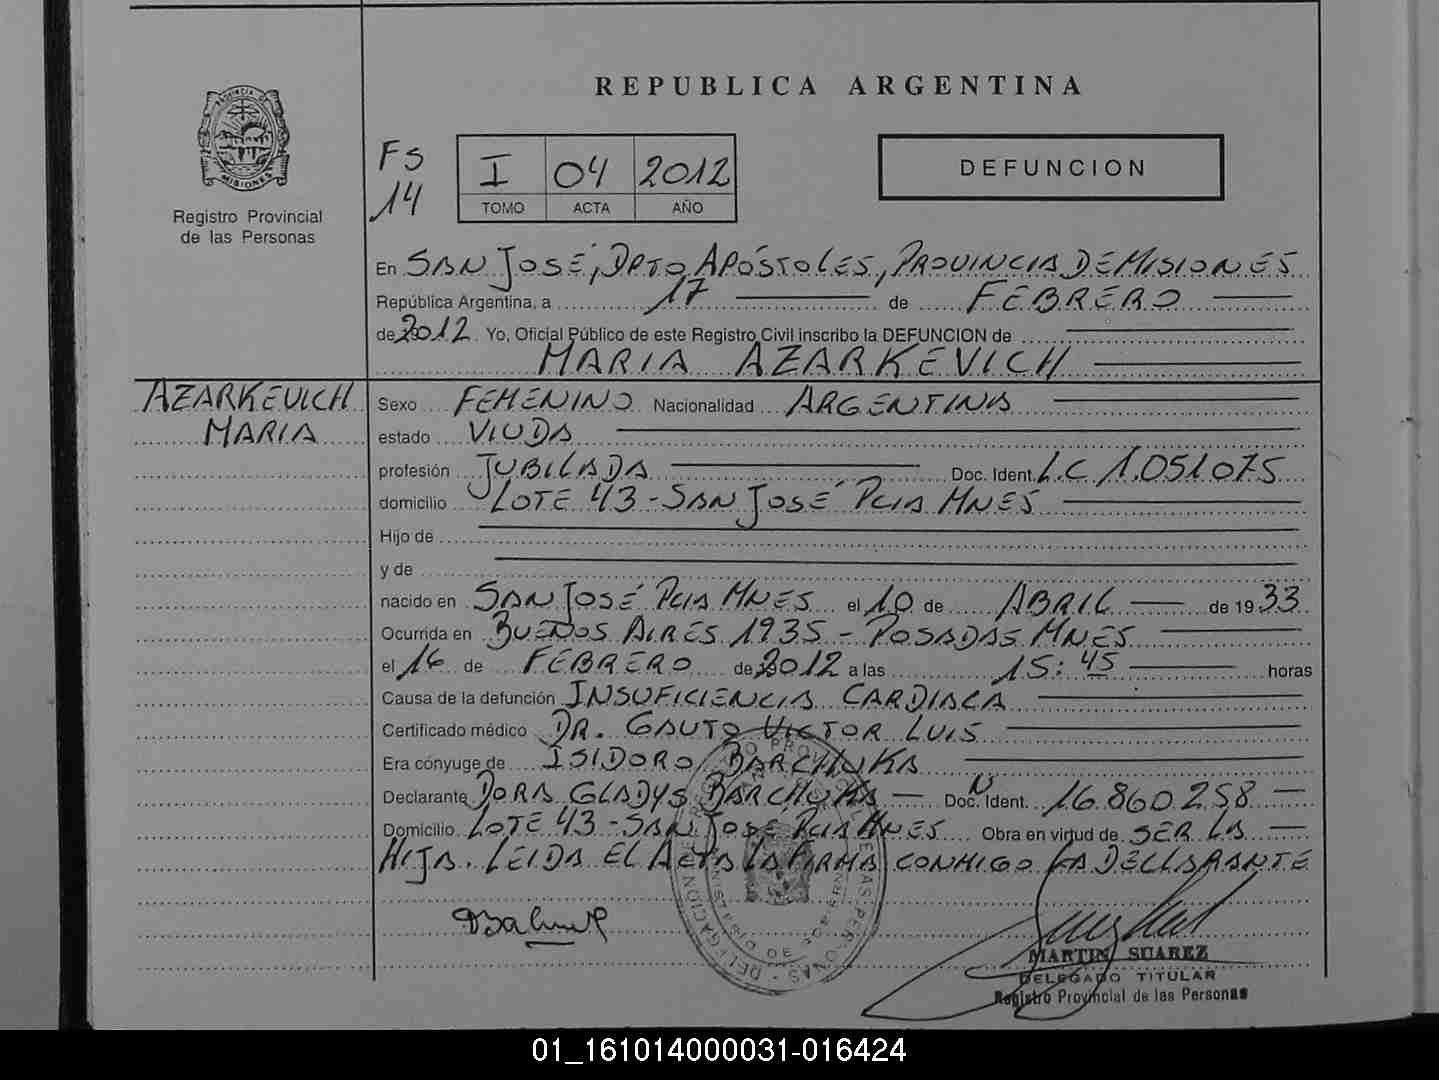 REPUBLICA ARGENTINA
PROVINCIA DE
MISIONES
Registro Provincial
de las Personas
FS
14
I 04 2012
TOMO ACTA AÑO
DEFUNCION
En SAN JOSÉ, DPTO APÓSTOLES, PROVINCIA DE MISIONES
República Argentina, a 17 de FEBRERO
de 2012. Yo, Oficial Público de este Registro Civil inscribo la DEFUNCION de
MARIA AZARKEVICH
AZARKEVICH
MARIA
Sexo FEMENINO Nacionalidad ARGENTINA
estado VIUDA
profesión JUBILADA Doc. Ident. L.C 1.051.075
domicilio LOTE 43 - SAN JOSÉ PCIA MNES
Hijo de
y de
nacido en SAN JOSÉ PCIA MNES el 10 de ABRIL de 1933
Ocurrida en BUENOS AIRES 1935 - POSADAS MNES
el 16 de FEBRERO de 2012 a las 15:45 horas
Causa de la defunción INSUFICIENCIA CARDIACA
Certificado médico DR. GAUTO VICTOR LUIS
Era cónyuge de ISIDORO BARCHUKA
Declarante DORA GLADYS BARCHUKA Doc. N Ident. 16.860.258
Domicilio LOTE 43 - SAN JOSÉ PCIA MNES Obra en virtud de SER LA
HIJA. LEIDA EL ACTA LA FIRMA CONMIGO LA DECLARANTE
MARTIN SUAREZ
DELEGADO TITULAR
Registro Provincial de las Personas
01_161014000031-016424